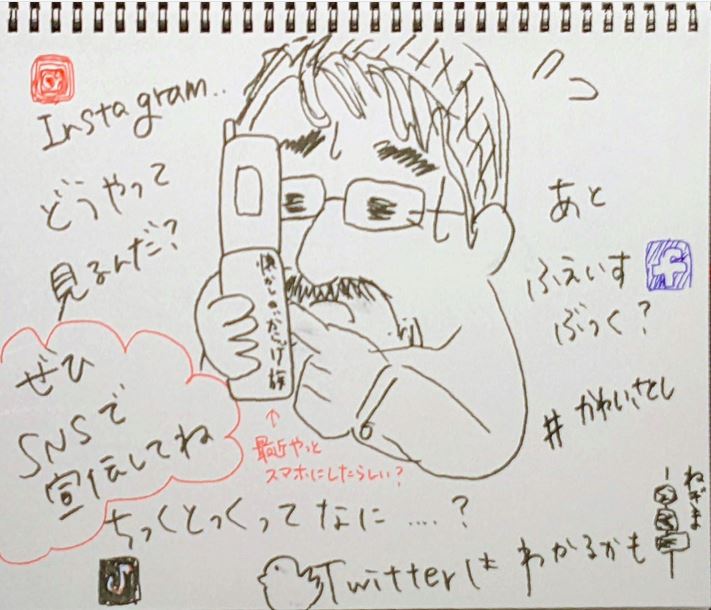 Instagram..
どうやって
見るんだ?
懐かしのがらけ族
あと
ふぇいす
ぶっく?
f
# かわいさとし
ぜひ
SNSで
宣伝してね
↑
最近やっと
スマホにしたらしい?
ちっくとっくってなに....?
Twitterは わかるかも
ねぎま